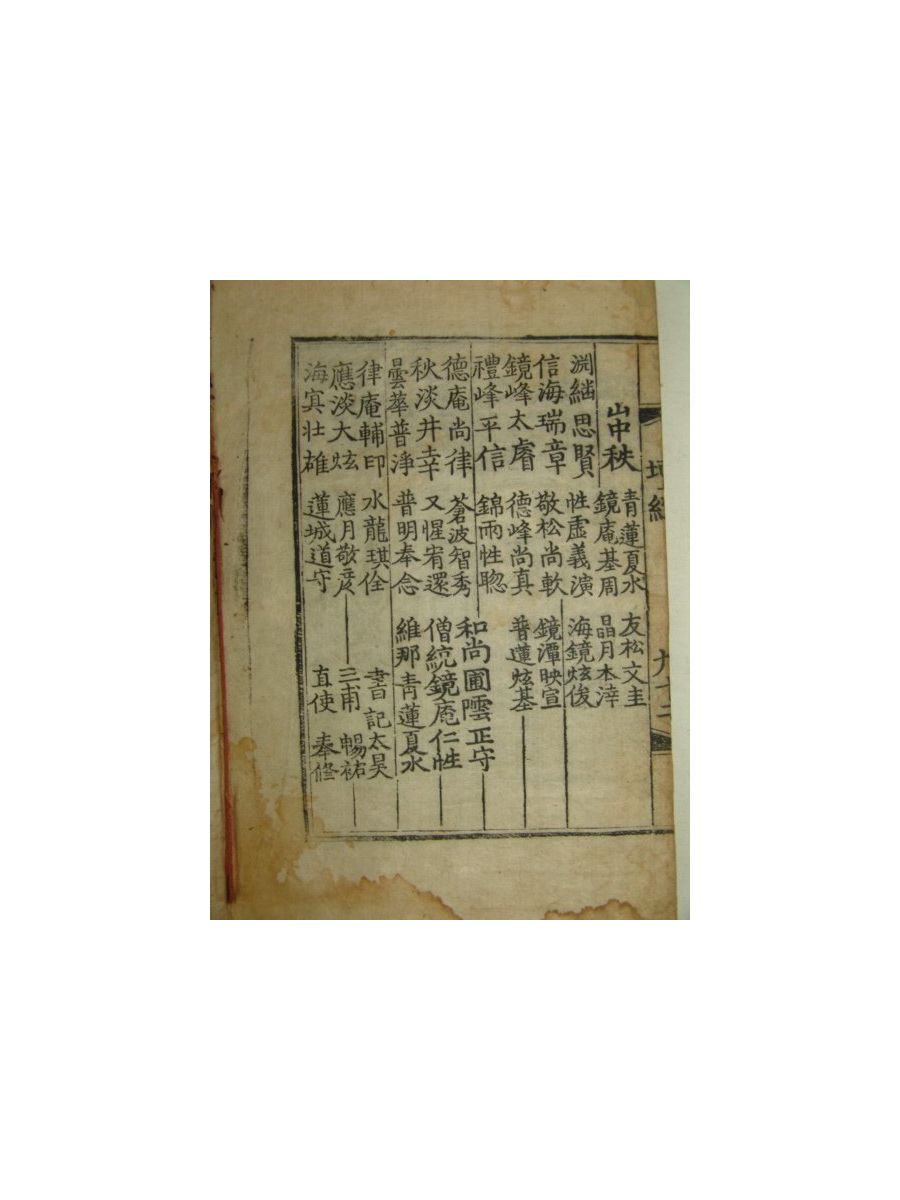 壇經
九十二
山中秩
青蓮夏水
友松文圭
鏡庵基周
晶月本淬
淵繼思賢
性虛義演
海鏡炫俊
信海瑞章
敬松尚軟
鏡潭映宣
鏡峰太睿
德峰尚真
普蓮炫基
禮峰平信
錦雨性聰
德庵尚律
蒼波智秀
和尚圃隱正守
秋淡井幸
又惺宥還
僧統鏡庵仁性
曇華普淨
普明奉念
維那青蓮夏水
律庵輔印
水龍琪佺
書記太昊
應淡大炫
應月敬彦
三甫暢祐
海寞壯雄
蓮城道守
直使奉修